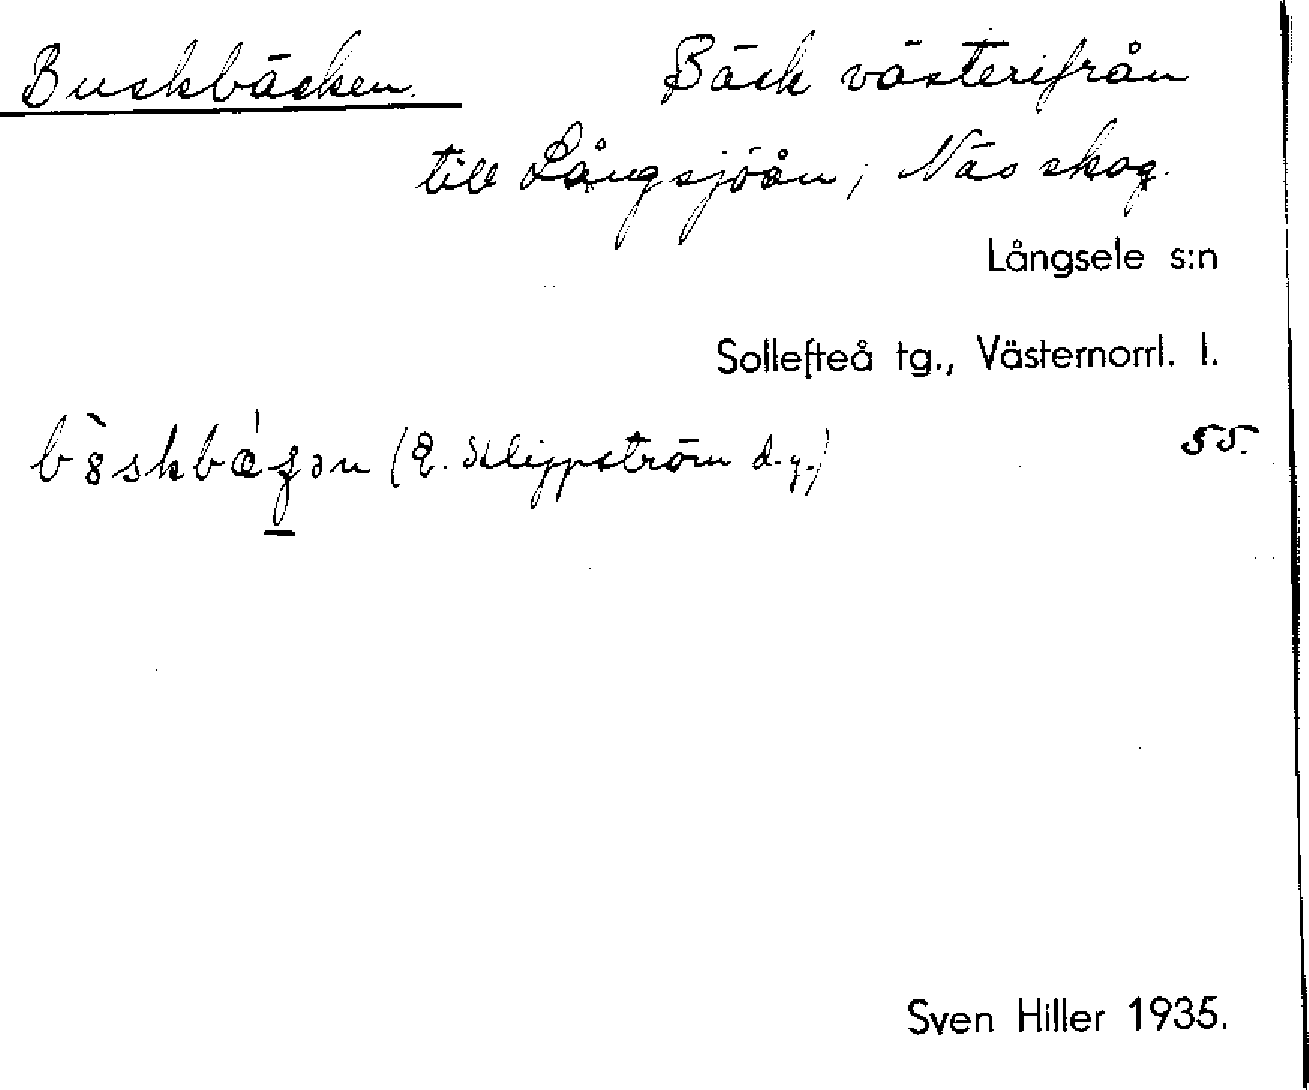 Buskbäcken. Bäck västerifrån
till Långsjöån, Näs skog.
Långsele s:n
Sollefteå tg., Västernorrl. l.
(E. Klippström d.y.) 55.
Sven Hiller 1935.